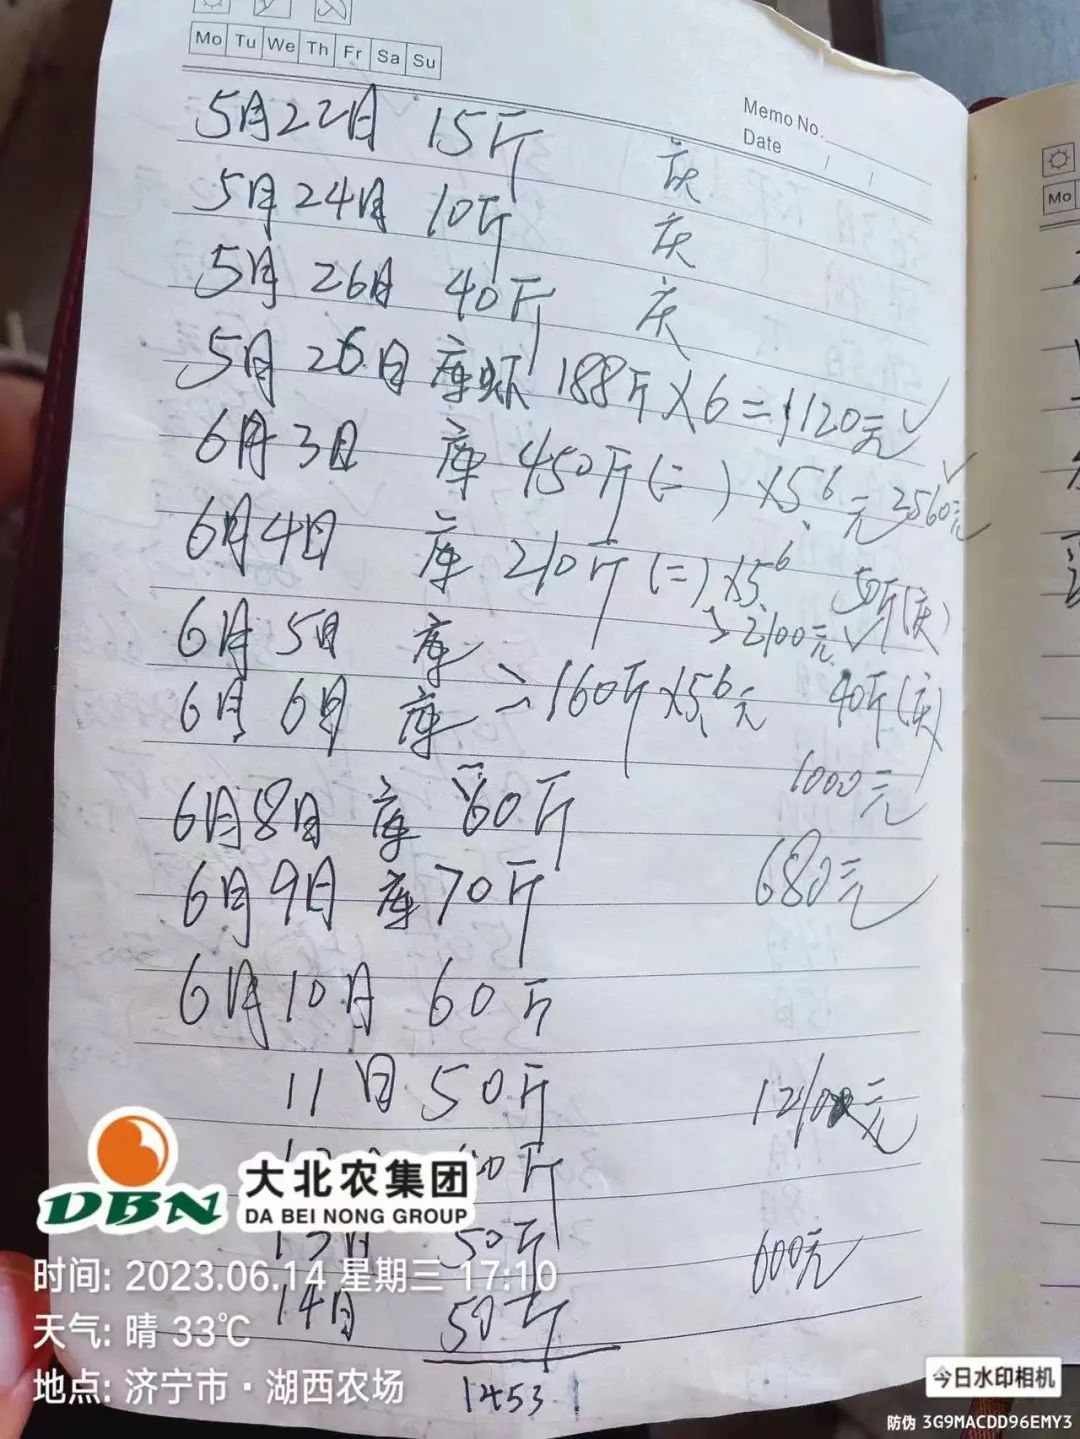 Mo Tu We Th Fr Sa Su
Memo No.
Date
5月22日 15斤 庆
5月24日 10斤 庆
5月26日 40斤 庆
5月26日 库虾 188斤×6=1120元✓
6月3日 库 450斤(二)×5.6元 2560元✓
6月4日 库 210斤(二)×5.6 50斤(庆)
>2100元✓
6月5日 库
6月6日 库 160斤×5.6元 40斤(庆)
1000元
6月8日 库 60斤
680元
6月9日 库 70斤
6月10日 60斤
11日 50斤
元
斤
13日 50斤
600元
14日 50斤
1453
Mo
DBN 大北农集团
DA BEI NONG GROUP
时间: 2023.06.14 星期三 17:10
天气: 晴 33℃
地点: 济宁市·湖西农场
今日水印相机
防伪 3G9MACDD96EMY3